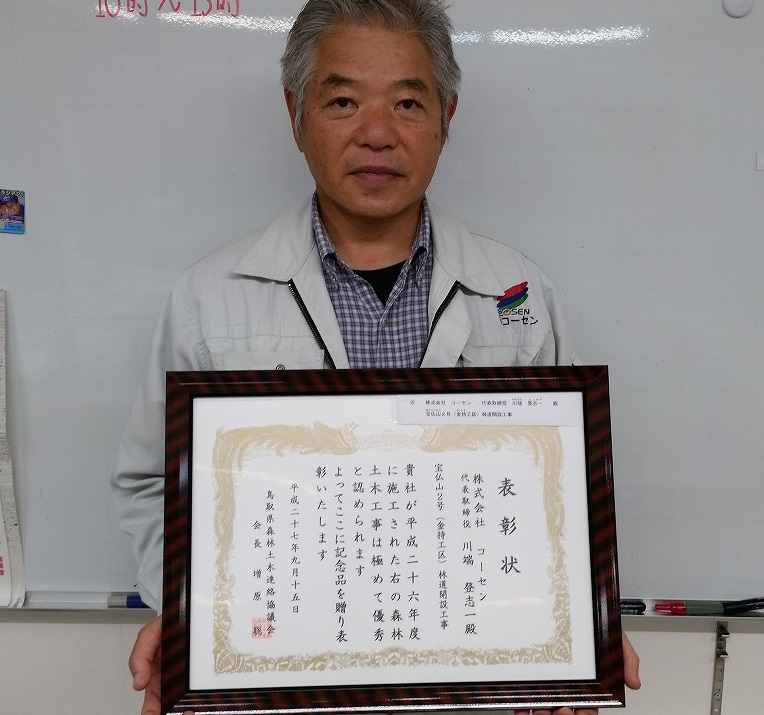 10時〜15時
KOSEN
コーセン
④ 株式会社 コーセン 代表取締役 川端 登志一 殿
宝仏山2号(金持工区)林道開設工事
表彰状
株式会社 コーセン
代表取締役 川端 登志一殿
宝仏山2号(金持工区)林道開設工事
貴社が平成二十六年度
に施工された右の森林
土木工事は極めて優秀
と認められます
よってここに記念品を贈り表
彰いたします
平成二十七年九月十五日
鳥取県森林土木連絡協議会
会長 増原 聡